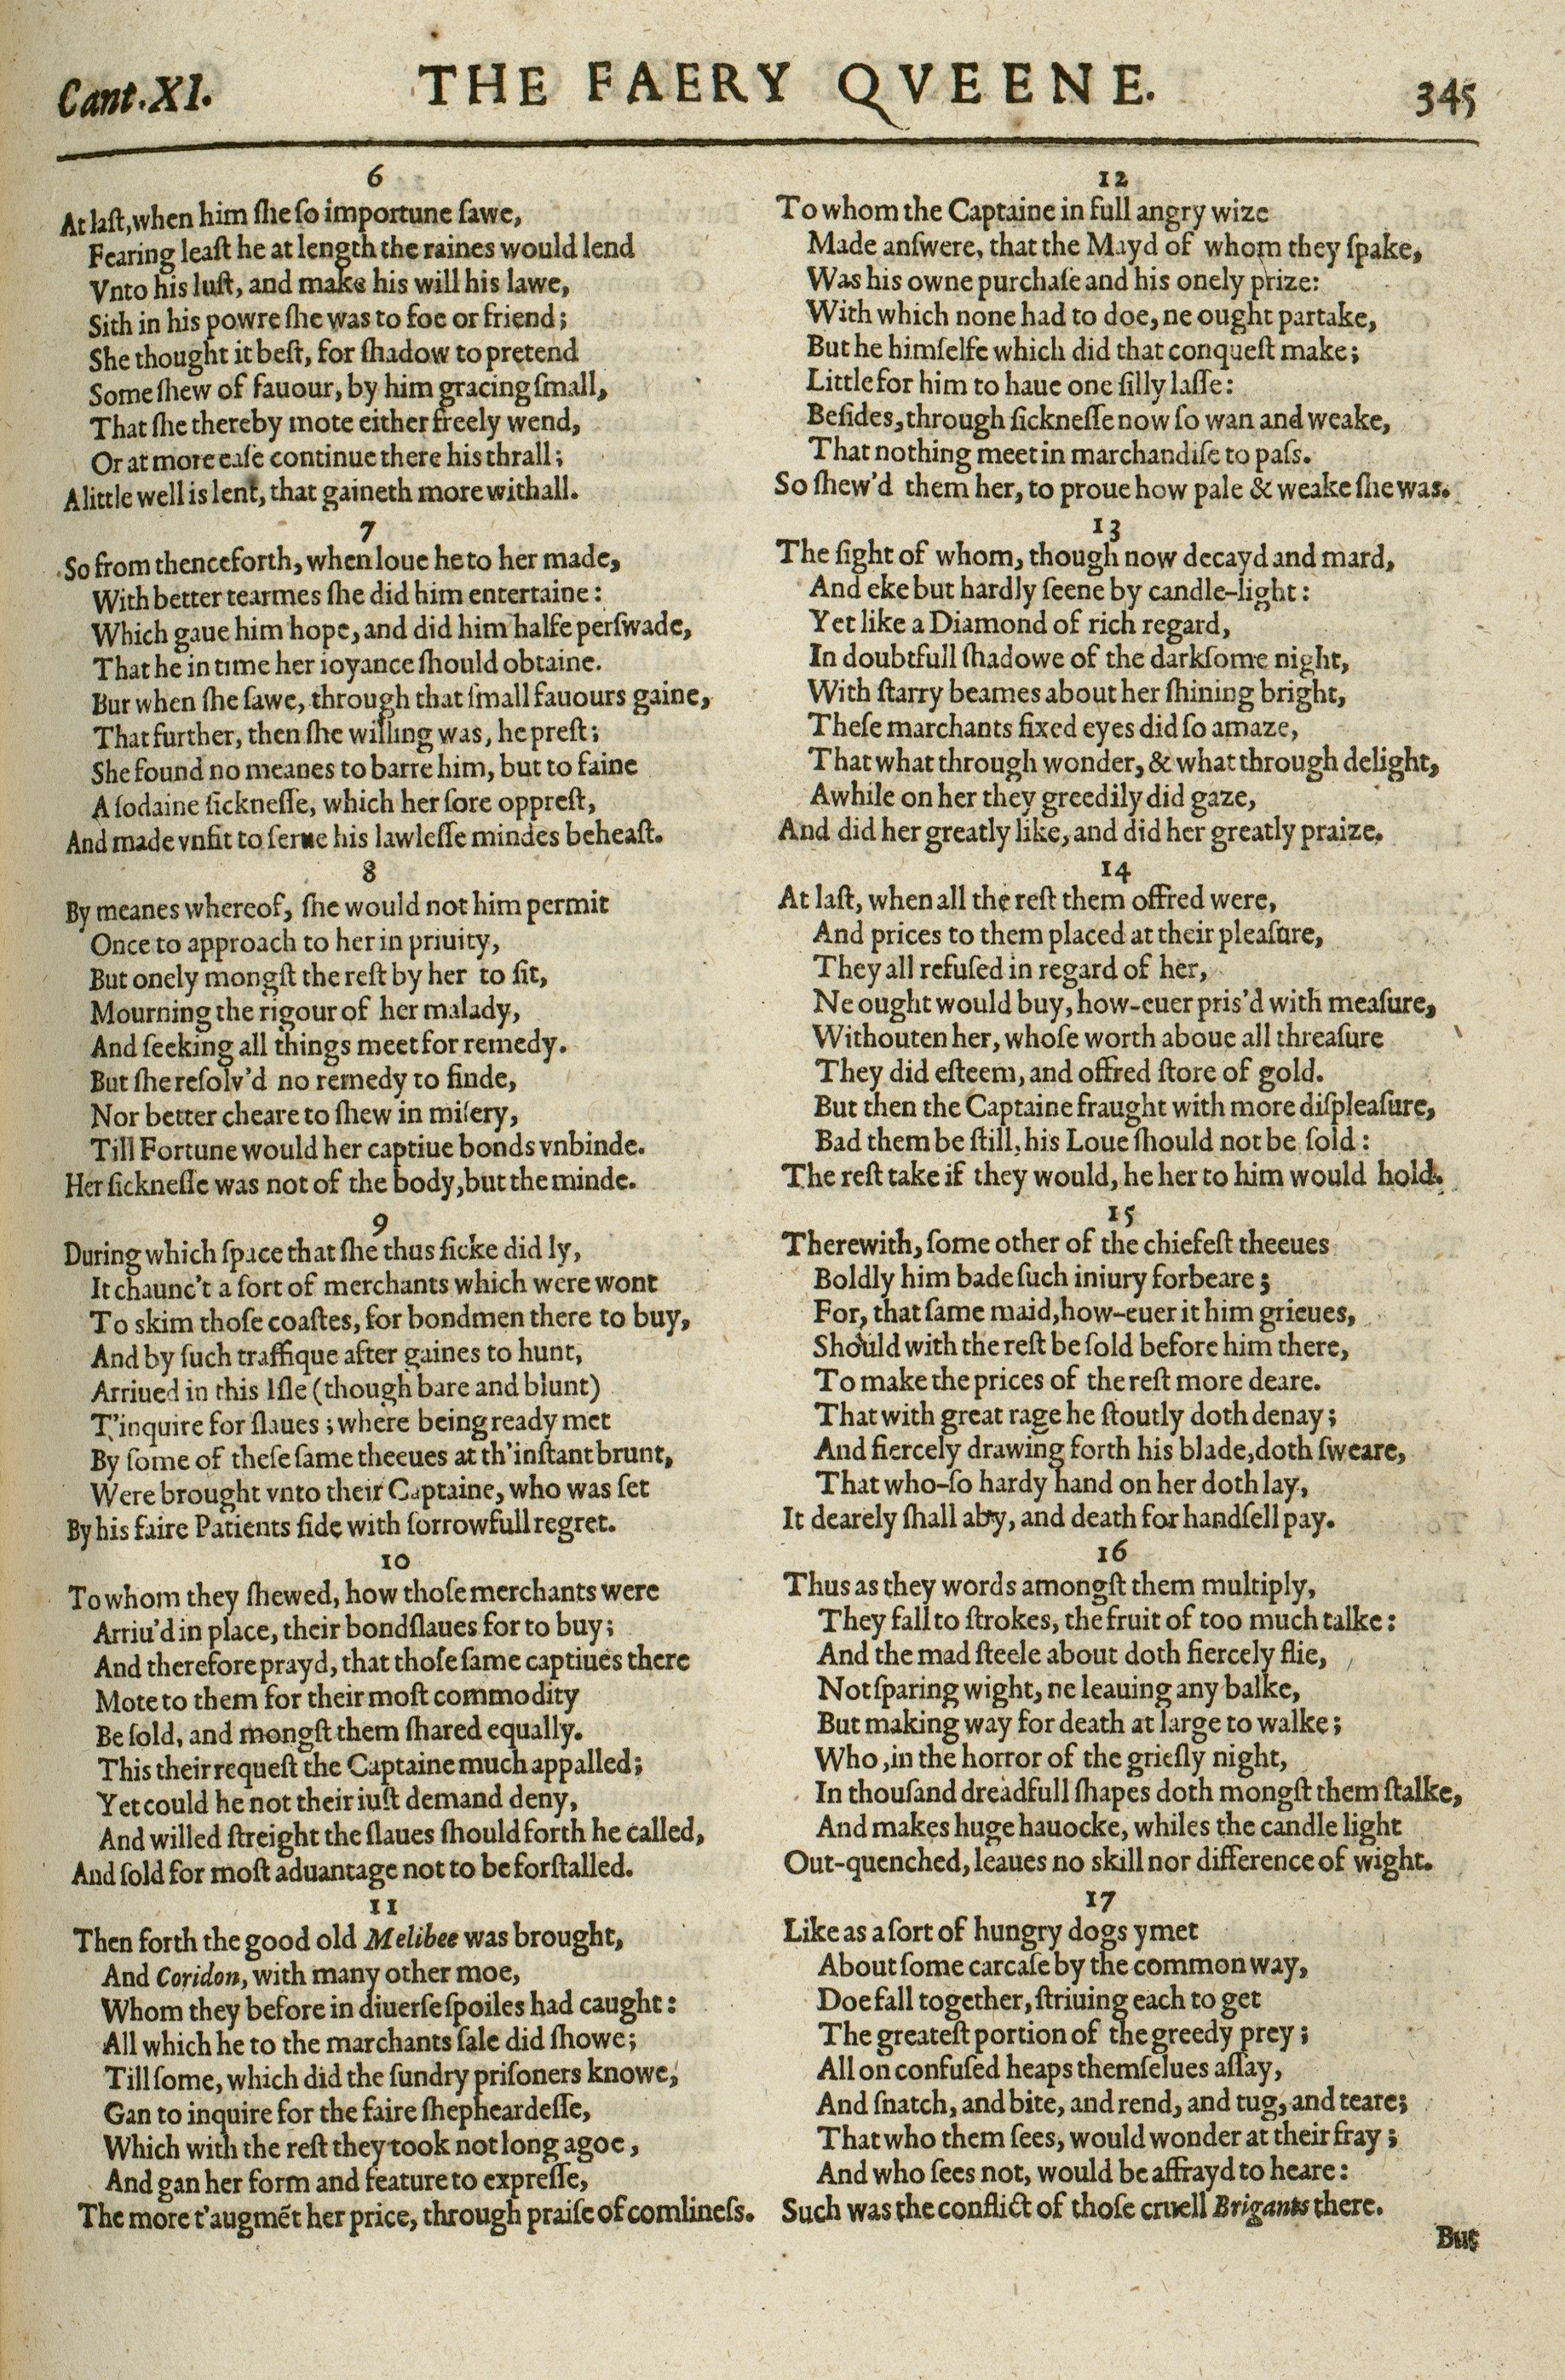 Cant.XI. THE FAERY QVEENE. 345
6
At laſt, when him ſhe ſo importune ſawe,
Fearing leaſt he at length the raines would lend
Vnto his luſt, and make his will his lawe,
Sith in his powre ſhe was to foe or friend;
She thought it beſt, for ſhadow to pretend
Some ſhew of fauour, by him gracing ſmall,
That ſhe thereby mote either freely wend,
Or at more eaſe continue there his thrall;
A little well is lent, that gaineth more withall.
7
So from thenceforth, when loue he to her made,
With better tearmes ſhe did him entertaine:
Which gaue him hope, and did him halfe perſwade,
That he in time her ioyance ſhould obtaine.
Bur when ſhe ſawe, through that ſmall fauours gaine,
That further, then ſhe willing was, he preſt;
She found no meanes to barre him, but to faine
A ſodaine ſickneſſe, which her ſore oppreſt,
And made vnfit to ſerue his lawleſſe mindes beheaſt.
8
By meanes whereof, ſhe would not him permit
Once to approach to her in priuity,
But onely mongſt the reſt by her to ſit,
Mourning the rigour of her malady,
And ſeeking all things meet for remedy.
But ſhe reſolv'd no remedy to finde,
Nor better cheare to ſhew in miſery,
Till Fortune would her captiue bonds vnbinde.
Her ſickneſſe was not of the body, but the minde.
9
During which ſpace that ſhe thus ſicke did ly,
It chaunc't a ſort of merchants which were wont
To skim thoſe coaſtes, for bondmen there to buy,
And by ſuch traffique after gaines to hunt,
Arriued in this Iſle (though bare and blunt)
T'inquire for ſlaues; where being ready met
By ſome of theſe ſame theeues at th'inſtant brunt,
Were brought vnto their Captaine, who was ſet
By his faire Patients ſide with ſorrowfull regret.
10
To whom they ſhewed, how thoſe merchants were
Arriu'd in place, their bondſlaues for to buy;
And therefore prayd, that thoſe ſame captiues there
Mote to them for their moſt commodity
Be ſold, and mongſt them ſhared equally.
This their requeſt the Captaine much appalled;
Yet could he not their iuſt demand deny,
And willed ſtreight the ſlaues ſhould forth he called,
And ſold for moſt aduantage not to be forſtalled.
11
Then forth the good old Melibee was brought,
And Coridon, with many other moe,
Whom they before in diuerſe ſpoiles had caught:
All which he to the marchants ſale did ſhowe;
Till ſome, which did the ſundry priſoners knowe,
Gan to inquire for the faire ſhepheardeſſe,
Which with the reſt they took not long agoe,
And gan her form and feature to expreſſe,
The more t'augmēt her price, through praiſe of comlineſs.
12
To whom the Captaine in full angry wize
Made anſwere, that the Mayd of whom they ſpake,
Was his owne purchaſe and his onely prize:
With which none had to doe, ne ought partake,
But he himſelfe which did that conqueſt make;
Little for him to haue one ſilly laſſe:
Beſides, through ſickneſſe now ſo wan and weake,
That nothing meet in marchandiſe to paſs.
So ſhew'd them her, to proue how pale & weake ſhe was.
13
The ſight of whom, though now decayd and mard,
And eke but hardly ſeene by candle-light:
Yet like a Diamond of rich regard,
In doubtfull ſhadowe of the darkſome night,
With ſtarry beames about her ſhining bright,
Theſe marchants fixed eyes did ſo amaze,
That what through wonder, & what through delight,
Awhile on her they greedily did gaze,
And did her greatly like, and did her greatly praize.
14
At laſt, when all the reſt them offred were,
And prices to them placed at their pleaſure,
They all refuſed in regard of her,
Ne ought would buy, how-euer pris'd with meaſure,
Withouten her, whoſe worth aboue all threaſure
They did eſteem, and offred ſtore of gold.
But then the Captaine fraught with more diſpleaſure,
Bad them be ſtill, his Loue ſhould not be ſold:
The reſt take if they would, he her to him would hold.
15
Therewith, ſome other of the chiefeſt theeues
Boldly him bade ſuch iniury forbeare;
For, that ſame maid, how-euer it him grieues,
Should with the reſt be ſold before him there,
To make the prices of the reſt more deare.
That with great rage he ſtoutly doth denay;
And fiercely drawing forth his blade, doth ſweare,
That who-ſo hardy hand on her doth lay,
It dearely ſhall aby, and death for handſell pay.
16
Thus as they words amongſt them multiply,
They fall to ſtrokes, the fruit of too much talke:
And the mad ſteele about doth fiercely flie,
Not ſparing wight, ne leauing any balke,
But making way for death at large to walke;
Who, in the horror of the grieſly night,
In thouſand dreadfull ſhapes doth mongſt them ſtalke,
And makes huge hauocke, whiles the candle light
Out-quenched, leaues no skill nor difference of wight.
17
Like as a ſort of hungry dogs ymet
About ſome carcaſe by the common way,
Doe fall together, ſtriuing each to get
The greateſt portion of the greedy prey;
All on confuſed heaps themſelues aſſay,
And ſnatch, and bite, and rend, and tug, and teare;
That who them ſees, would wonder at their fray;
And who ſees not, would be affrayd to heare:
Such was the conflict of thoſe cruell Brigants there.
But